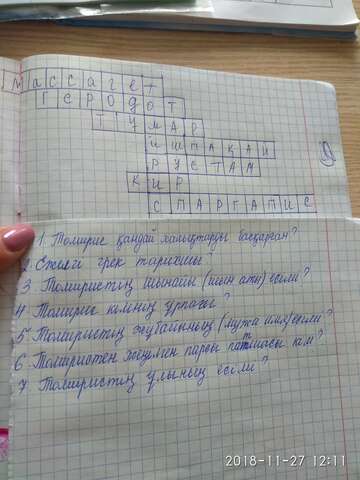 МАССАГЕТ
ГЕРОДОТ
ТҰМАР
ИШПАКАЙ
РУСТАМ
КИР
СПАРГАПИС
1. Томирис қандай халықтарды басқарған?
2. Ежелгі грек тарихшы?
3 Томиристің шынайы (шын аты) есімі?
4 Томирис кімнің ұрпағы?
5 Томиристің жұбайының (мужа имя) есімі?
6. Томиристен жеңілген парсы патшасы кім?
7. Томиристің ұлының есімі?
2018-11-27 12:11